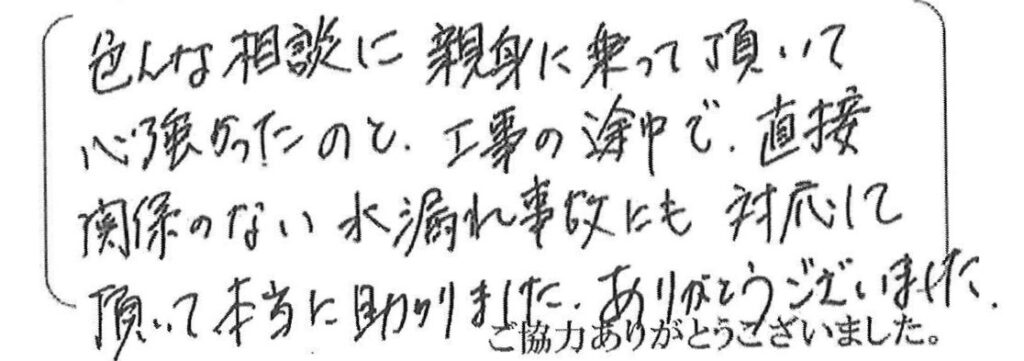 色んな相談に親身に乗って頂いて
心強かったのと、工事の途中で、直接
関係のない水漏れ事故にも対応して
頂いて本当に助かりました。ありがとうございました。
ご協力ありがとうございました。